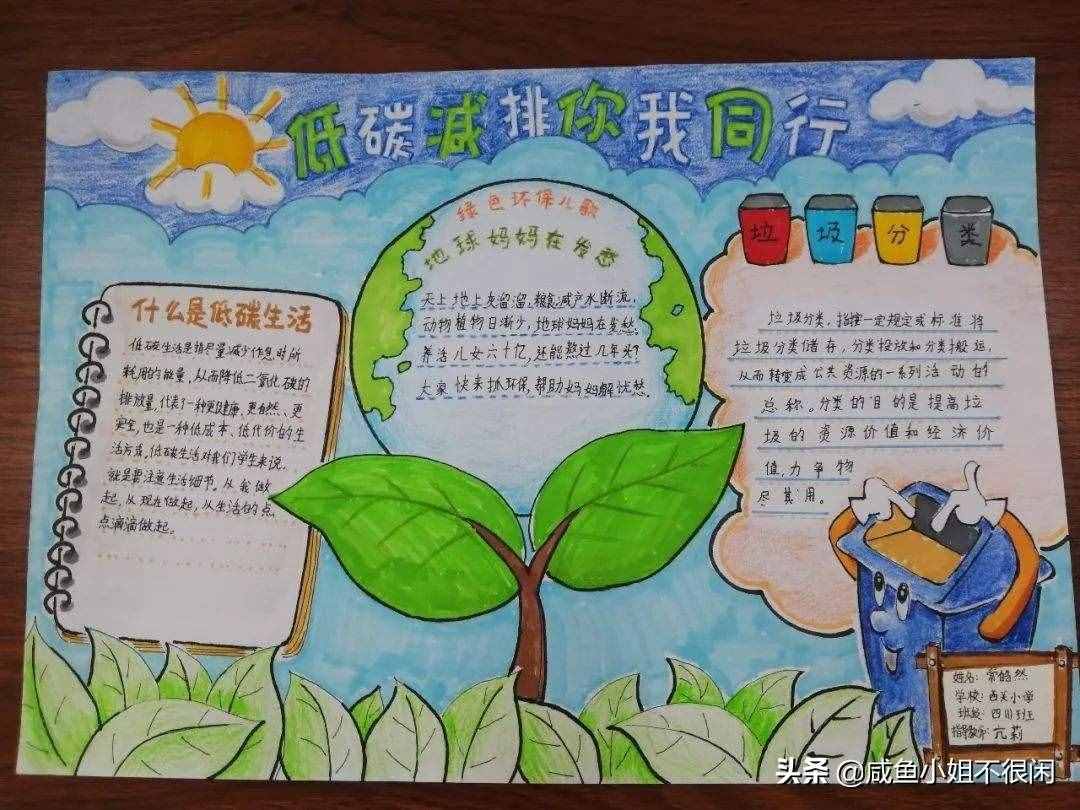 低碳减排你我同行
什么是低碳生活
低碳生活是指尽量减少作息时所
耗用的能量,从而降低二氧化碳的
排放量,代表了一种更健康、更自然、更
安全,也是一种低成本、低代价的生
活方式。低碳生活对我们学生来说,
就是要注意生活细节。从我做
起,从现在做起,从生活的点
点滴滴做起。
绿色环保儿歌
地球妈妈在发愁
天上地上灰溜溜,粮食减产水断流,
动物植物日渐少,地球妈妈在发愁。
养活儿女六十亿,还能熬过几年头?
大家快来抓环保,帮助妈妈解忧愁。
垃 圾 分 类
垃圾分类,指按一定规定或标准将
垃圾分类储存,分类投放和分类搬运,
从而转变成公共资源的一系列活动的
总称。分类的目的是提高垃
圾的资源价值和经济价
值,力争物
尽其用。
姓名:常皓然
学校:西关小学
班级:四(1)班
指导教师:亢莉
头条 @咸鱼小姐不很闲